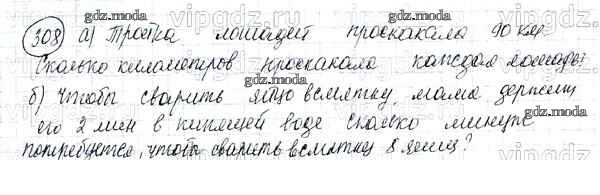 308 а) Тройка лошадей проскакала 90 км.
Сколько километров проскакала каждая лошадь?
б) Чтобы сварить яйцо всмятку, мама держит
его 2 мин в кипящей воде. Сколько минут
потребуется, чтобы сварить всмятку 8 яиц?
gdz.moda
vipgdz.ru